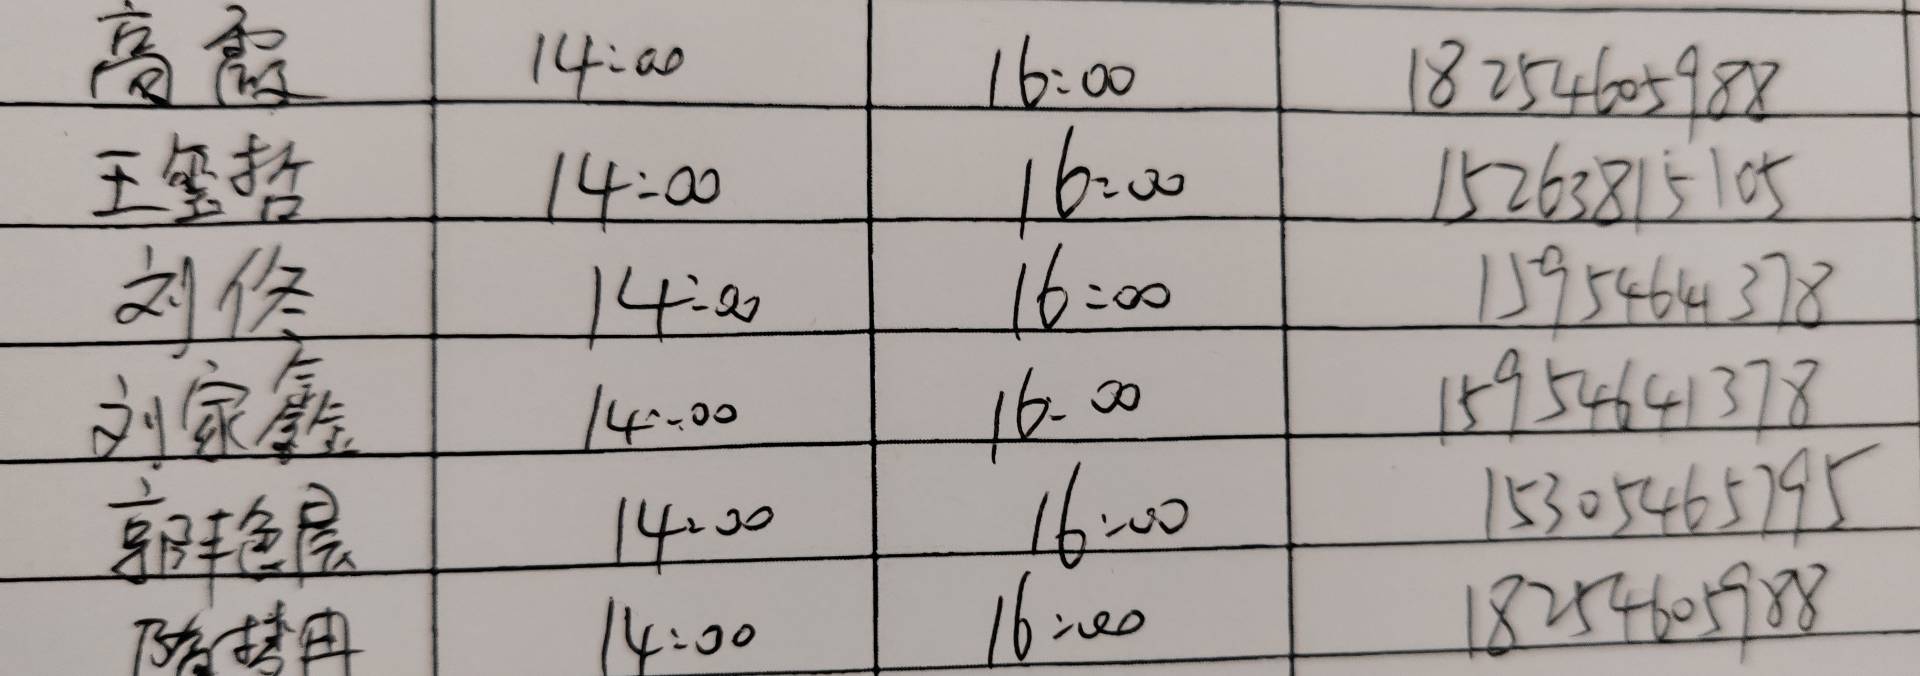 高霞 14:00 16:00 18254605988
王玺哲 14:00 16:00 15263815105
刘佟 14:00 16:00 1595464378
刘家鑫 14:00 16:00 15954641378
郭艳晨 14:00 16:00 15305465795
14:00 16:00 18254605988